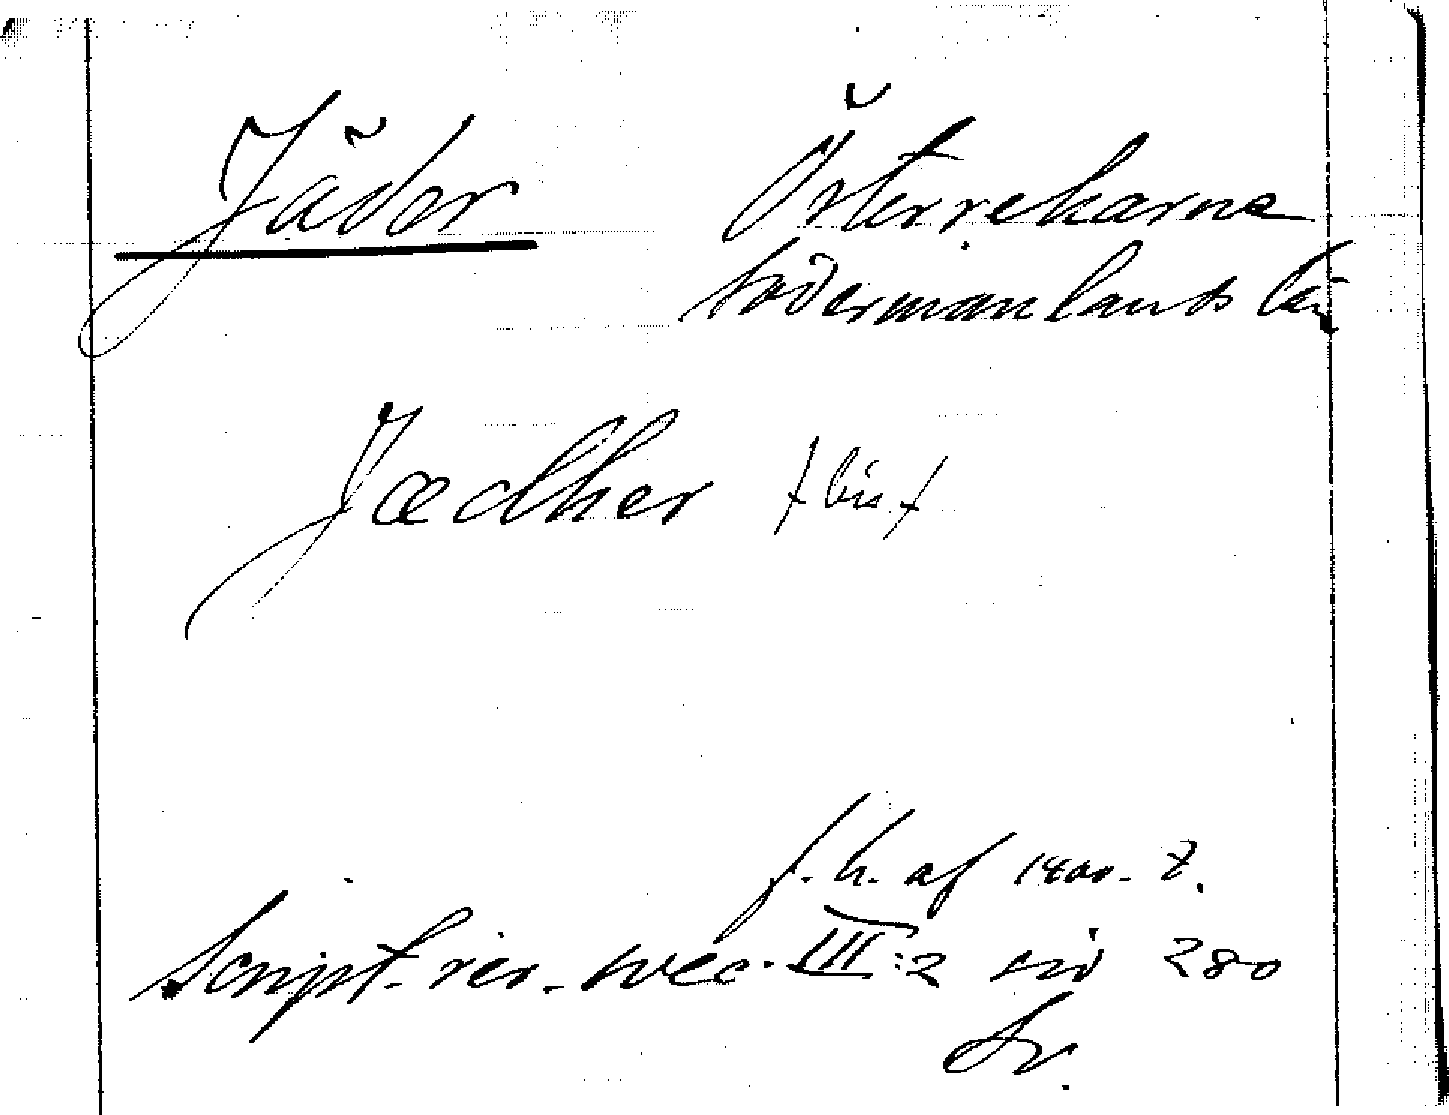 Jäder Österrekarne
Södermanlands län
Jædher / bis /
f. h. af 1400-t.
Script. rer. svec. III:2 sid 280
Sv.